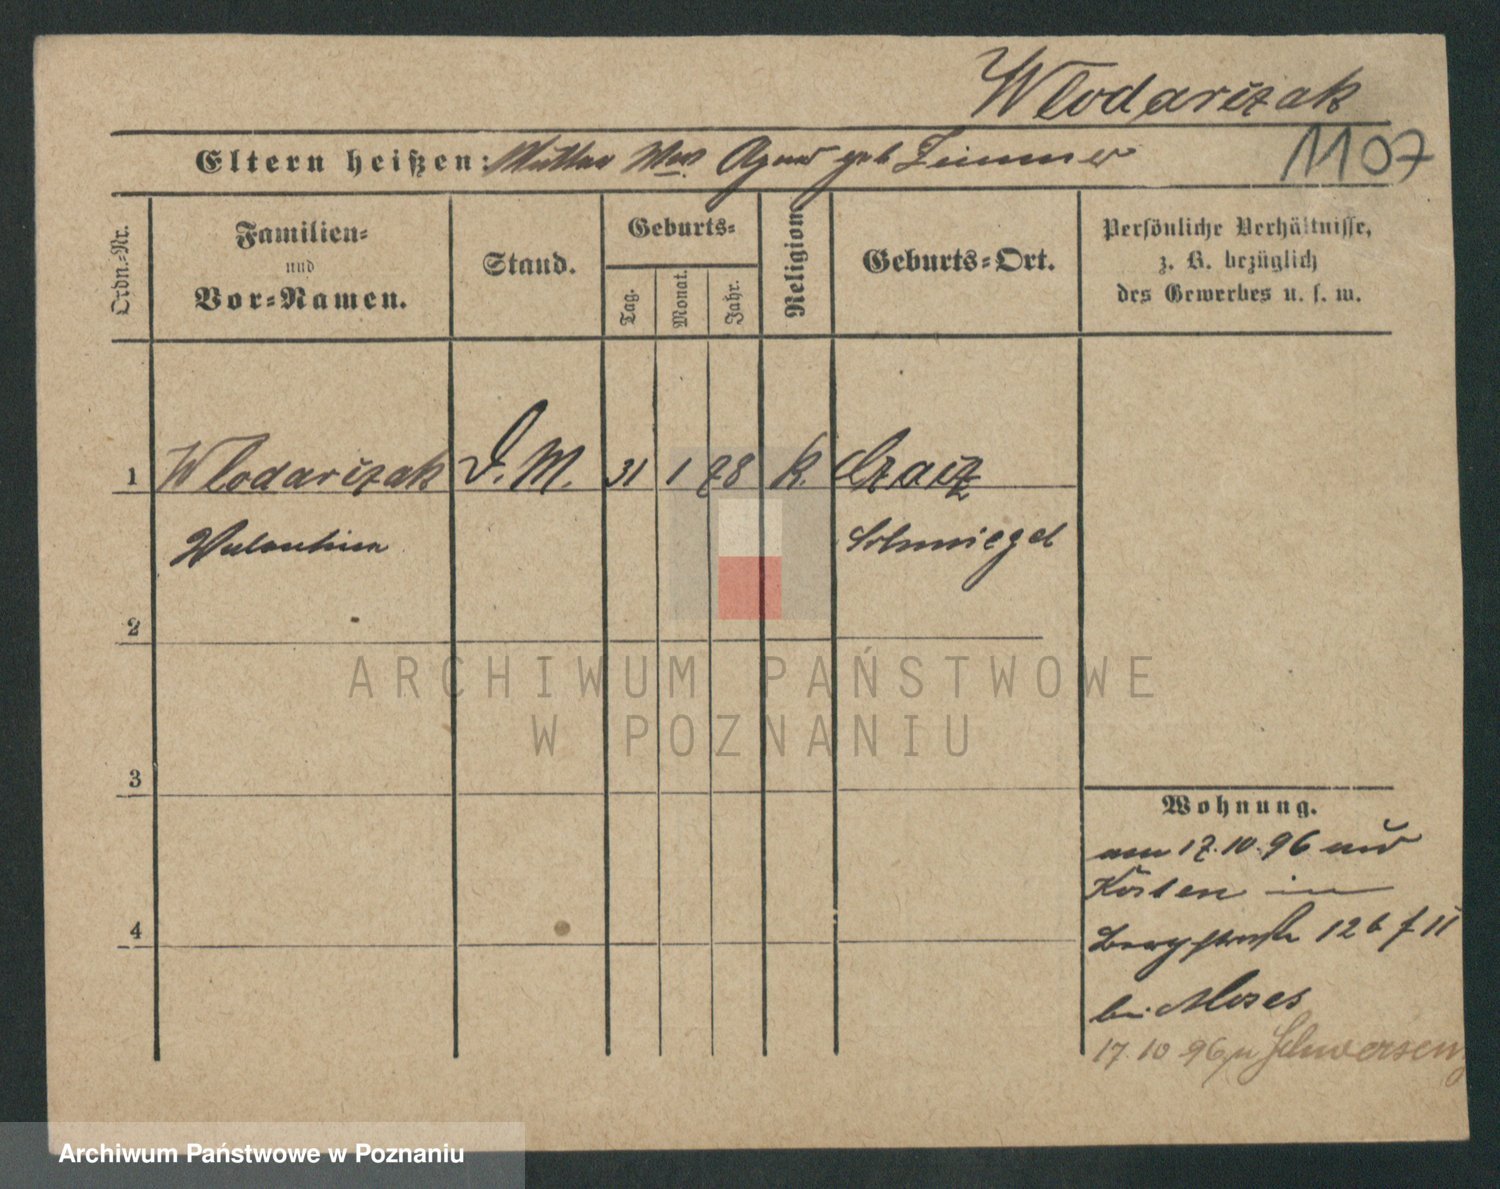 Wlodarczak
1107
Eltern heißen: Mutter Ww. Agnes geb Zimmer
Ordn.-Nr.
Familien-
und
Vor-Namen.
Stand.
Geburts-
Tag.
Monat.
Jahr.
Religion
Geburts-Ort.
Persönliche Verhältnisse,
z. B. bezüglich
des Gewerbes u. s. w.
1 Wlodarczak D. M. 31 1 78 k. Czacz
Valentin Schmiegel
2
3
4
ARCHIWUM PAŃSTWOWE
W POZNANIU
Wohnung.
am 17.10.96 aus
Kosten in
Bergstraße 12b
bei Moses
17.10 96 n Schwersenz
Archiwum Państwowe w Poznaniu